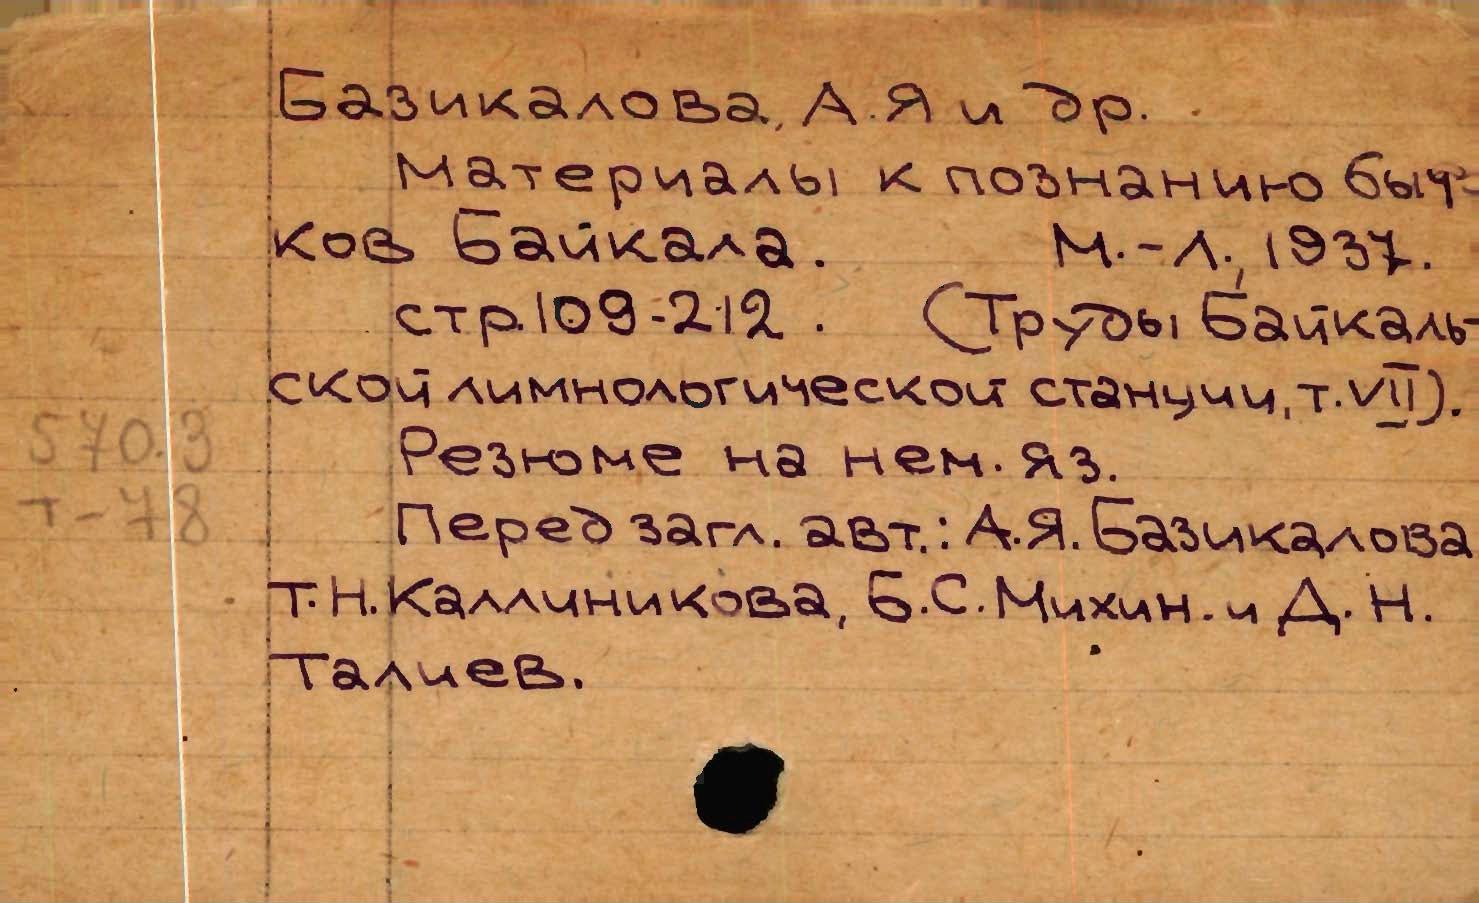 Базикалова, А.Я и др.
Материалы к познанию быч-
ков Байкала. М.-Л., 1937.
стр. 109-212. (Труды Байкаль-
ской лимнологической станции, т. VII).
570.3
Резюме на нем. яз.
т-78
Перед загл. авт.: А.Я. Базикалова
Т.Н. Каллиникова, Б.С. Михин. и Д.Н.
Талиев.